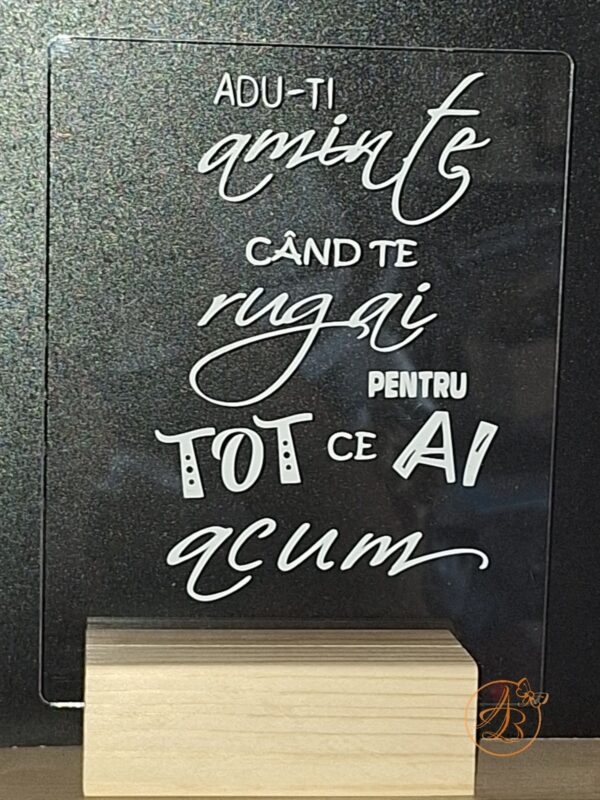 ADU-TI
aminte
CÂND TE
rugai
PENTRU
TOT CE AI
acum